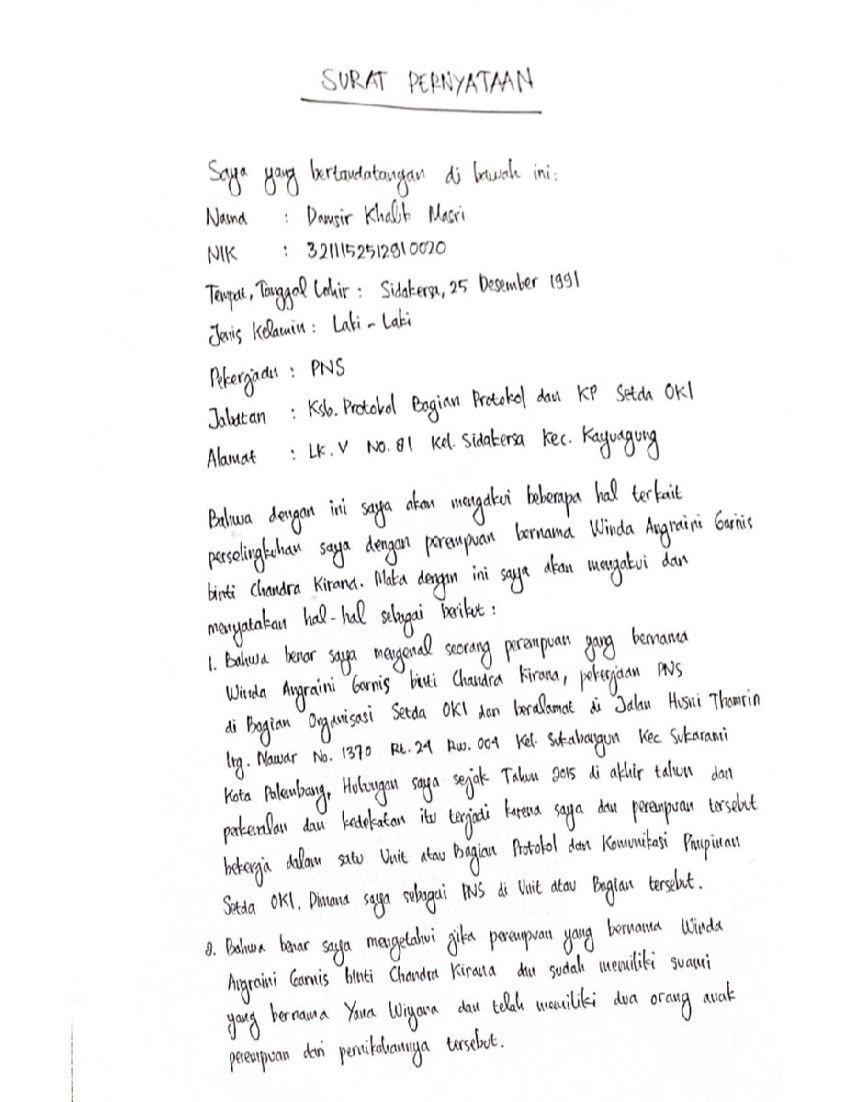 SURAT PERNYATAAN
Saya yang bertandatangan di bawah ini:
Nama : Damsir Khalik Masri
NIK : 3211152512910020
Tempat, Tanggal Lahir : Sidakersa, 25 Desember 1991
Jenis Kelamin : Laki - Laki
Pekerjaan : PNS
Jabatan : Ksb. Protokol Bagian Protokol dan KP Setda OKI
Alamat : LK. V No. 81 Kel. Sidakersa Kec. Kayuagung
Bahwa dengan ini saya akan mengakui beberapa hal terkait
perselingkuhan saya dengan perempuan bernama Winda Angraini Garnis
binti Chandra Kirana. Maka dengan ini saya akan mengakui dan
menyatakan hal-hal sebagai berikut :
1. Bahwa benar saya mengenal seorang perempuan yang bernama
Winda Angraini Garnis binti Chandra Kirana, pekerjaan PNS
di Bagian Organisasi Setda OKI dan beralamat di Jalan Husni Thamrin
lrg. Mawar No. 1370 Rt. 29 Rw. 004 Kel. Sukabangun Kec Sukarami
Kota Palembang, Hubungan saya sejak Tahun 2015 di akhir tahun dan
perkenalan dan kedekatan itu terjadi karena saya dan perempuan tersebut
bekerja dalam satu Unit atau Bagian Protokol dan Komunikasi Pimpinan
Setda OKI. Dimana saya sebagai PNS di Unit atau Bagian tersebut.
2. Bahwa benar saya mengetahui jika perempuan yang bernama Winda
Angraini Garnis binti Chandra Kirana dan sudah memiliki suami
yang bernama Yana Wiyana dan telah memiliki dua orang anak
perempuan dari pernikahannya tersebut.